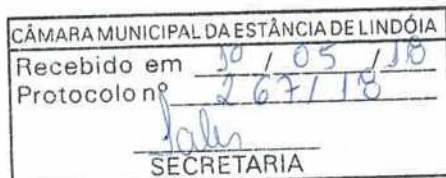 CÂMARA MUNICIPAL DA ESTÂNCIA DE LINDÓIA
Recebido em 10 / 05 / 18
Protocolo nº 267/18
SECRETARIA